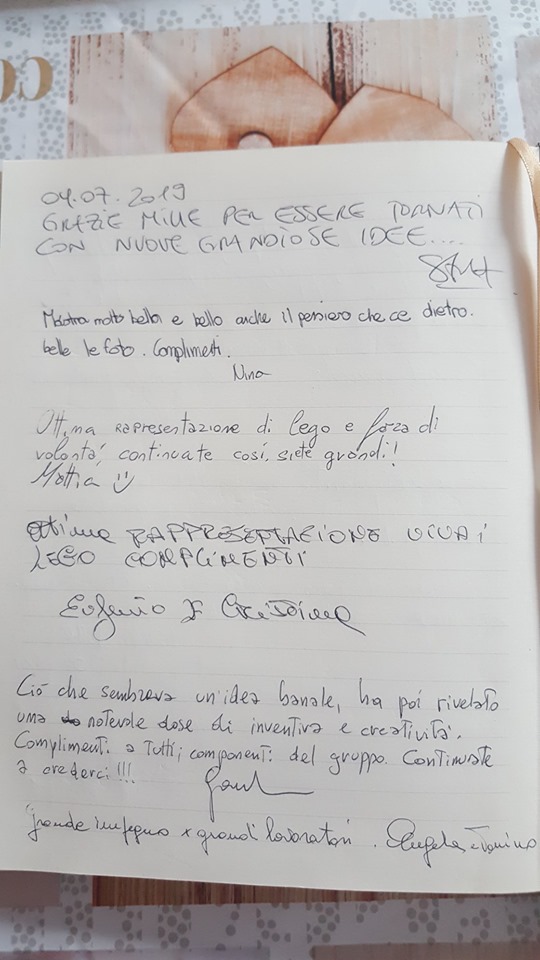 CO
04.07.2019
GRAZIE MILLE PER ESSERE TORNATI
CON NUOVE GRANDIOSE IDEE....
Mostra molto bella e bello anche il pensiero che ce dietro.
belle le foto. Complimenti.
Nina
Ottima rapresentazione di lego e forza di
volontà, continuate così, siete grandi!
Mattia
ottima RAPPRESETAZIONE VIVA I
LEGO COMPLIMENTI
Eugenio
Ciò che sembrava un'idea banale, ha poi rivelato
una notevole dose di inventiva e creatività.
Complimenti a tutti i componenti del gruppo. Continuate
a crederci!!!
grande impegno x grandi lavoratori. Angela e Tonino